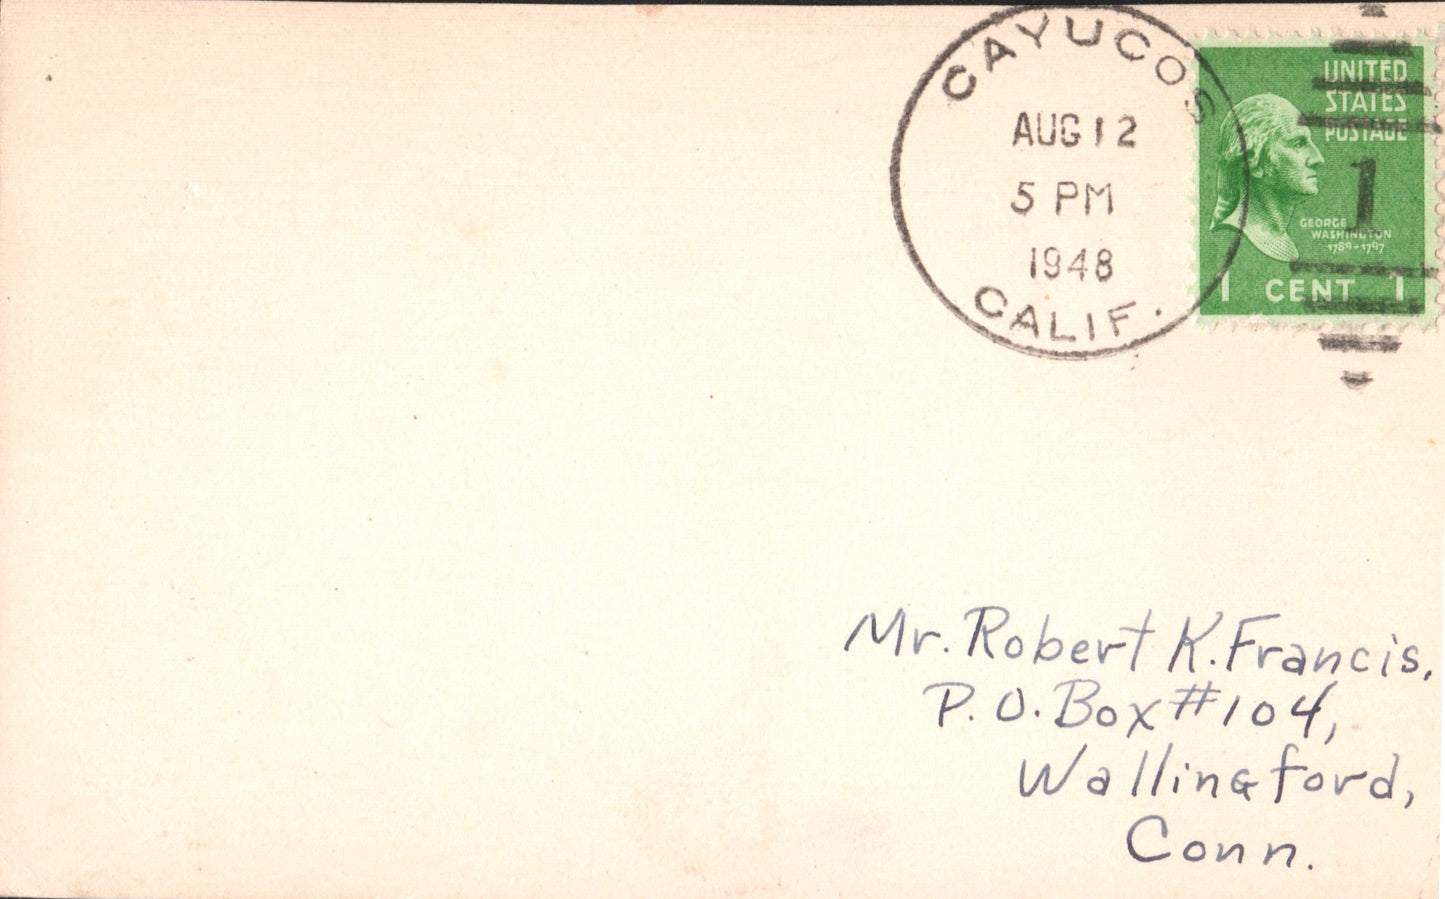 CAYUCOS
AUG 12
5 PM
1948
CALIF.
UNITED
STATES
POSTAGE
1
GEORGE
WASHINGTON
1789-1797
1 CENT 1
Mr. Robert K. Francis,
P. O. Box #104,
Wallingford,
Conn.